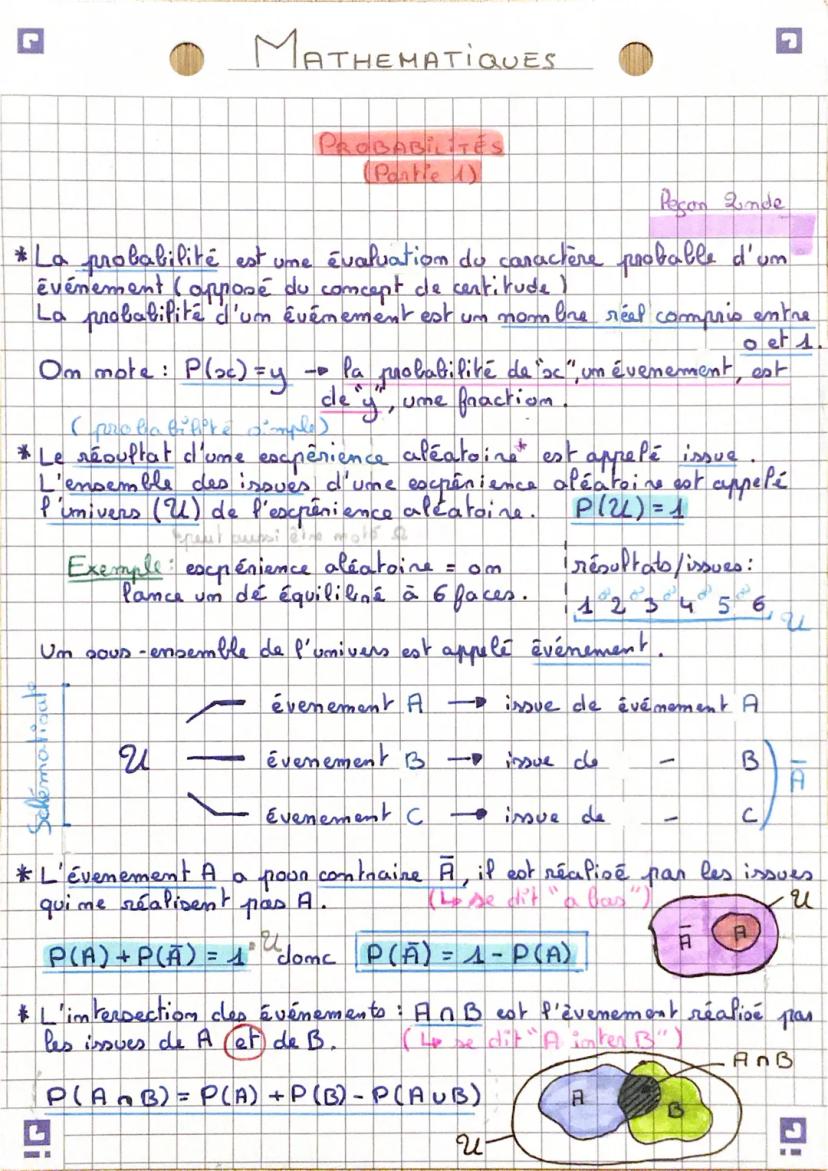 MATHEMATIQUES
PROBABILITÉS
(Partie 1)
Leçon 2nde
* La probabilité est une évaluation du caractère probable d'un
événement (opposé du concept de certitude)
La probabilité d'un événement est un nombre réel compris entre
0 et 1.
On note : P(x) = y → la probabilité de "x", un évenement, est
de "y", une fraction.
(probabilité simple)
* Le résultat d'une expérience aléatoire* est appelé issue.
L'ensemble des issues d'une expérience aléatoire est appelé
l'univers (U) de l'expérience aléatoire. P(U) = 1
*peut aussi être noté Ω
Exemple : expérience aléatoire = on
lance un dé équilibré à 6 faces.
résultats/issues :
1 ∞ 2 ∞ 3 ∞ 4 ∞ 5 ∞ 6
U
Un sous-ensemble de l'univers est appelé événement.
Schématisat°
U
évenement A → issue de événement A
évenement B → issue de - B
évenement C → issue de - C
Ā
* L'évenement A a pour contraire Ā, il est réalisé par les issues
qui ne réalisent pas A. (↳ se dit "a bas")
U
Ā A
P(A) + P(Ā) = 1 U donc P(Ā) = 1 - P(A)
* L'intersection des événements : A ∩ B est l'èvenement réalisé par
les issues de A et de B. (↳ se dit "A inter B")
A ∩ B
P(A ∩ B) = P(A) + P(B) - P(A ∪ B)
A B
U